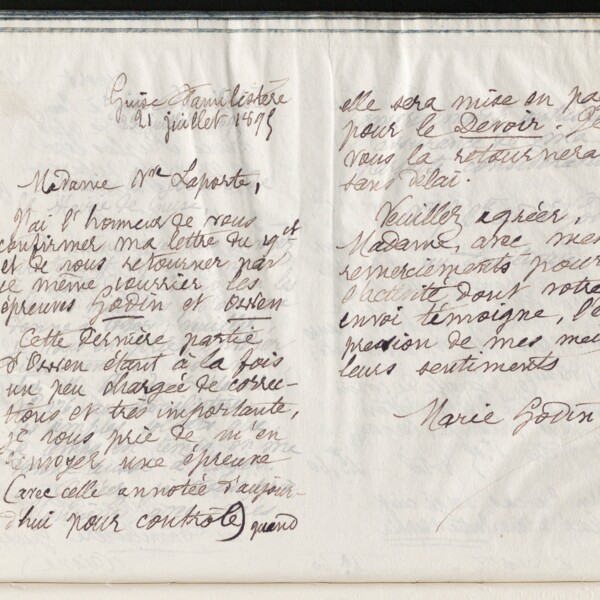 Guise Familistère
21 juillet 1895
Madame Nve Laporte,
J'ai l'honneur de vous
confirmer ma lettre du 19 ct
et de vous retourner par
ce même courrier les
épreuves Godin et Owen
Cette dernière partie
d'Owen étant à la fois
un peu chargée de correc-
tions et très importante,
je vous prie de m'en
renvoyer une épreuve
(avec celle annotée d'aujour-
d'hui pour contrôle) quand
elle sera mise en pa
pour le Devoir. Je
vous la retournera
sans délai.
Veuillez agréer,
Madame, avec mes
remerciements pour
l'activité dont votre
envoi témoigne, l'e
pression de mes meil
leurs sentiments
Marie Godin